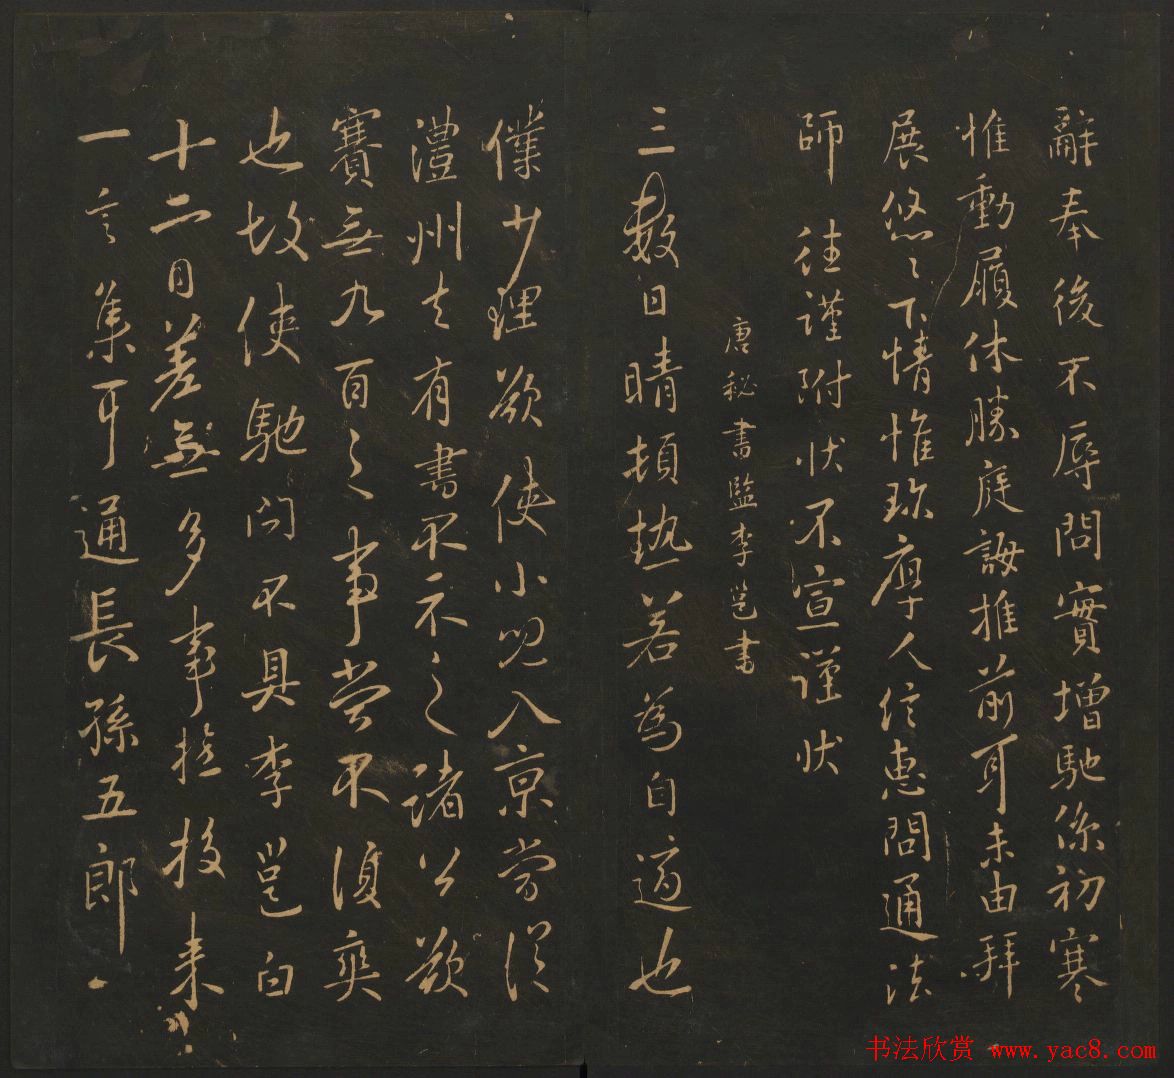 辭奉後不辱問實增馳係初寒
惟動履休勝庭誨推前耳未由拜
展悠々下情惟珎摩人信惠問通法
師 往謹附狀不宣謹狀
唐秘書監李邕書
三數日晴頓热若為自適也
僕少理欲使小兒入京當從
澧州去有書不示之諸公欲
賽無九百之事當不復奕
也故使馳問不具李邕白
十二日差無多事投來
一言集耳通長孫五郎
书法欣赏 www.yac8.com